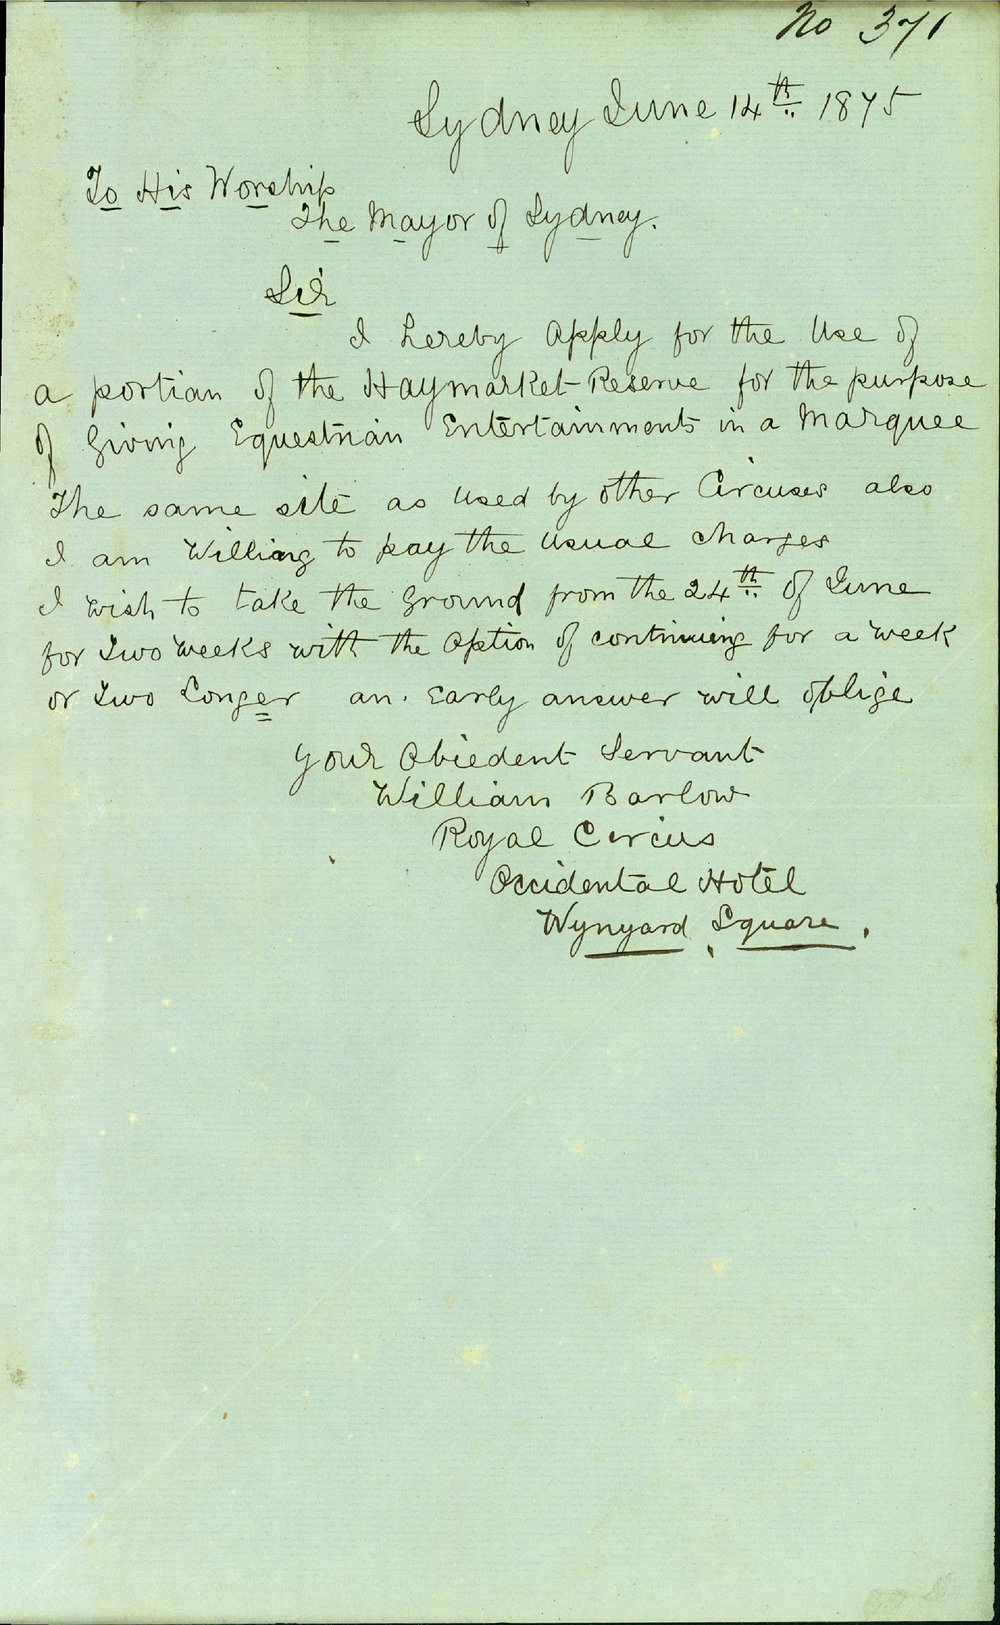 No 371
Sydney June 14th 1875
To His Worship
The Mayor of Sydney.
Sir
I hereby Apply for the Use of
a portian of the Haymarket Reserve for the purpose
of Giving Equestrian Entertainments in a Marquee
The same site as used by other Circuses also
I am Willing to pay the Usual Charges
I wish to take the Ground from the 24th of June
for Two Weeks with the Option of continuing for a Week
or Two Longer an. Early answer will oblige
Your Obiedent Servant
William Barlow
Royal Circus
Occidental Hotel
Wynyard Square.